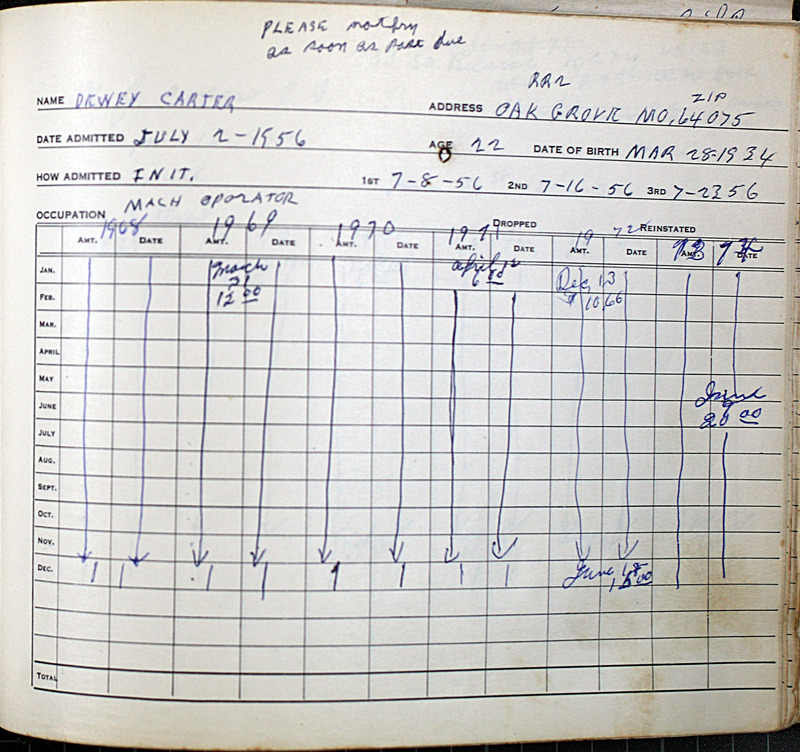 PLEASE notfny
as soon as Past due
RR2
ZIP
NAME DEWEY CARTER ADDRESS OAK GROVE MO, 64075
DATE ADMITTED JULY 2-1956 AGE 22 DATE OF BIRTH MAR 28-1934
HOW ADMITTED INIT. 1ST 7-8-56 2ND 7-16-56 3RD 7-23 56
OCCUPATION MACH OPORATOR
DROPPED REINSTATED
1968 1969 1970 1971 1972 73 74
AMT. DATE AMT. DATE AMT. DATE AMT. DATE AMT. DATE AMT. DATE
JAN. Mach April Dec 13
31 6 00
FEB. 12 00 10 66
MAR.
APRIL
MAY
JUNE June
20 00
JULY
AUG.
SEPT.
OCT.
NOV.
DEC. June 18
00
TOTAL